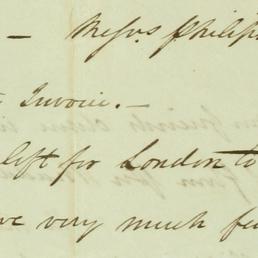 - Messrs. Philip
Invoice. -
left for London to
ve very much fe